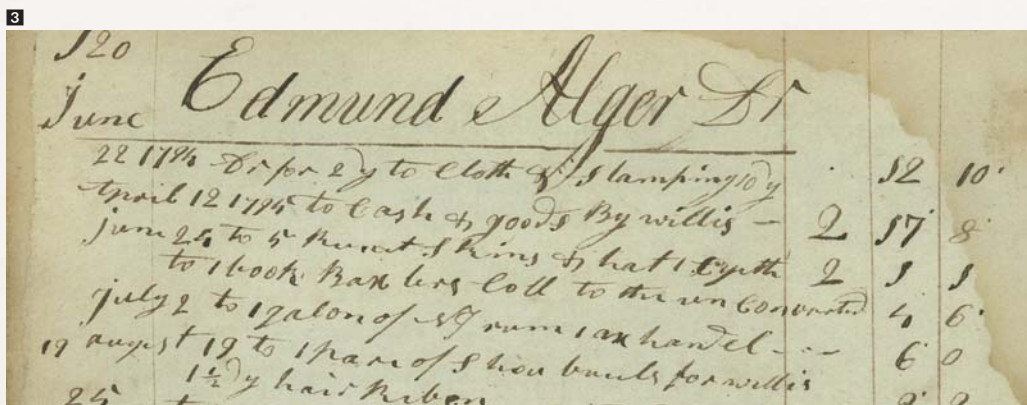 3
120
June Edmund Alger Dr
22 1794 Dr for 2 y to Cloth & Stamping 10 y 12 10
April 12 1795 to Cash & goods By willis — 2 17 8
june 24 to 5 Skins & hat 1 2 1 1
to 1 book Baxters Coll to the un Converted 4 6
july 2 to 1 galon of rum 1 ax handel 6 0
19 august 19 to 1 pare of Shou bucels for willis
1½ y hair Riben
25